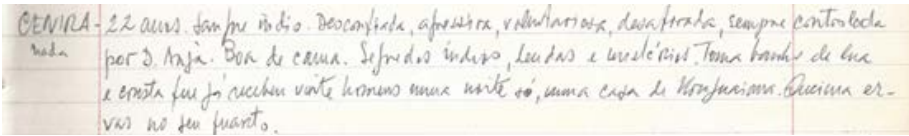 CENIRA - 22 anos. Sangue índio. Desconfiada, agressiva, voluntariosa, desaforada, sempre controlada
por D. Anja. Boa de cama. Segredos índios, lendas e mistérios. Toma banho de lua
nada
e consta que já recebeu vinte homens numa noite só, numa casa de Queima er-
vas no seu quarto.